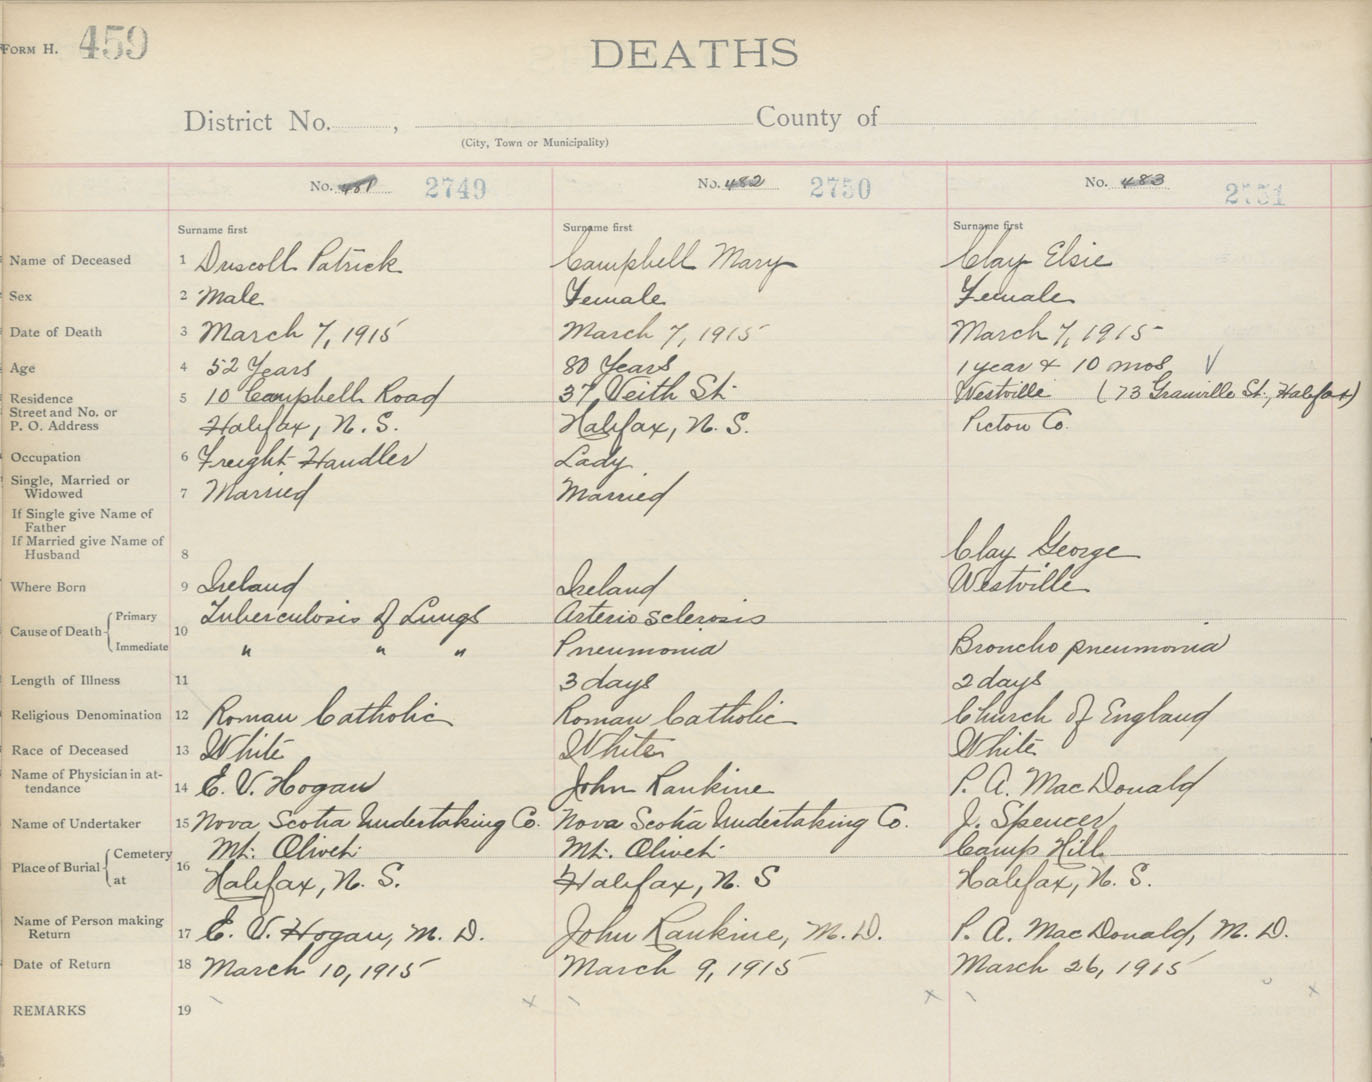 FORM H. 459
DEATHS
District No. , County of
(City, Town or Municipality)
No. 481 2749 No. 482 2750 No. 483 2751
Surname first Surname first Surname first
Name of Deceased 1 Driscoll Patrick Campbell Mary Clay Elsie
Sex 2 Male Female Female
Date of Death 3 March 7, 1915 March 7, 1915 March 7, 1915
Age 4 52 Years 80 Years 1 year & 10 mos
Residence 5 10 Campbell Road 37 Veith St. Westville (73 Granville St., Halifax)
Street and No. or
P. O. Address Halifax, N. S. Halifax, N. S. Pictou Co.
Occupation 6 Freight Handler Lady
Single, Married or
Widowed 7 Married Married
If Single give Name of
Father
If Married give Name of
Husband 8 Clay George
Where Born 9 Ireland Ireland Westville
Cause of Death Primary 10 Tuberculosis of Lungs Arterio sclerosis
Immediate " " " Pneumonia Broncho pneumonia
Length of Illness 11 3 days 2 days
Religious Denomination 12 Roman Catholic Roman Catholic Church of England
Race of Deceased 13 White White White
Name of Physician in at-
tendance 14 E. V. Hogan John Rankine P. A. MacDonald
Name of Undertaker 15 Nova Scotia Undertaking Co. Nova Scotia Undertaking Co. J. Spencer
Place of Burial Cemetery 16 Mt. Olivet Mt. Olivet Camp Hill
at Halifax, N. S. Halifax, N. S Halifax, N. S.
Name of Person making
Return 17 E. V. Hogan, M. D. John Rankine, M. D. P. A. MacDonald, M. D.
Date of Return 18 March 10, 1915 March 9, 1915 March 26, 1915
REMARKS 19